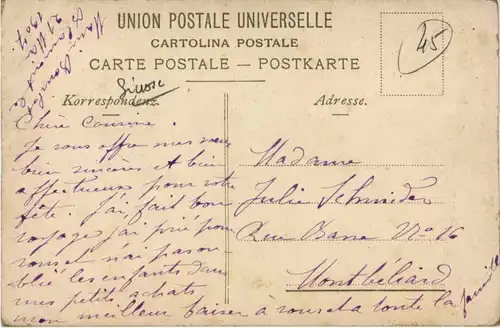 UNION POSTALE UNIVERSELLE
CARTOLINA POSTALE
CARTE POSTALE – POSTKARTE
45
21 Mai
1904
Korrespondenz.
Adresse.
Chère Cousine.
Je vous offre mes vœux
bien sincères et bien
affectueux pour votre
fête. J'ai fait bon
voyage j'ai prié pour
vous et n'ai pas ou-
blié les enfants dans
mes petits achats
mon meilleur baiser à vous et a toute la famille
Madame
Julie Schmider
Rue Basse No 16
Montbéliard